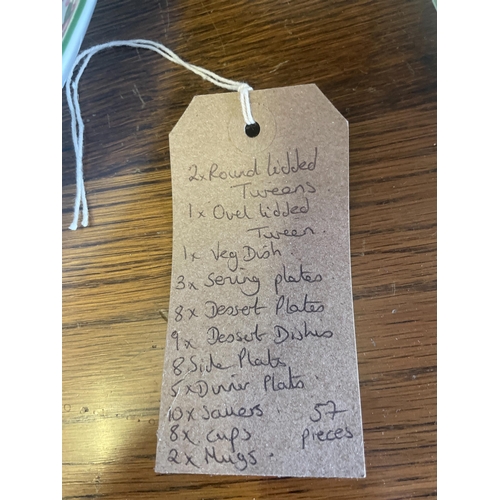 2x Round Lidded
Tureens.
1x Ovel Lidded
Tureen.
1x Veg Dish.
3x Sering plates.
8x Dessert Plates
9x Dessert Dishes
8 Side Plats
5x Dinner Plats.
10x Sauers. 57
8x Cups pieces
2x Mugs.